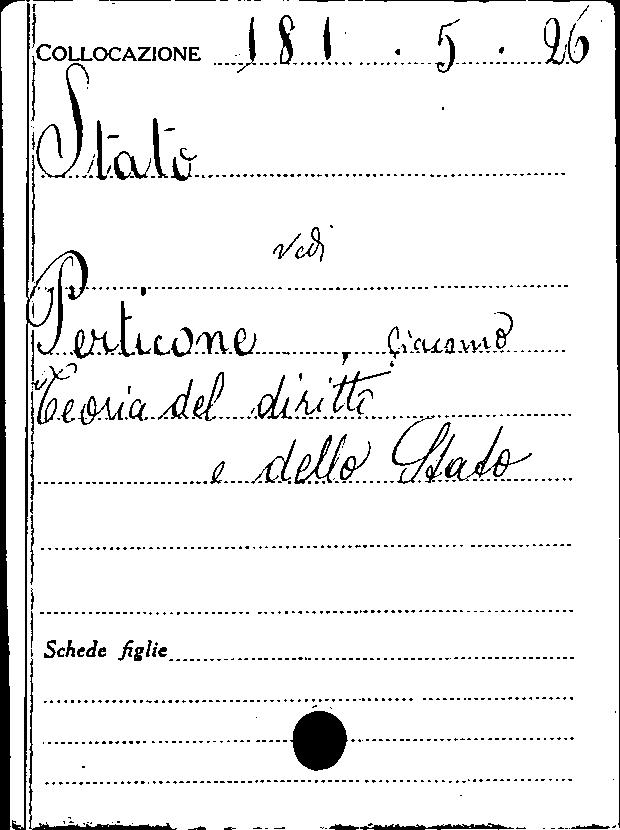 COLLOCAZIONE 181 . 5 . 26
Stato
vedi
Perticone, Giacomo
Teoria del diritto
e dello Stato
Schede figlie